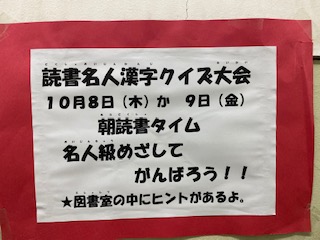 読書名人漢字クイズ大会
10月8日（木）か 9日（金）
朝読書タイム
名人級めざして
がんばろう！！
★図書室の中にヒントがあるよ。